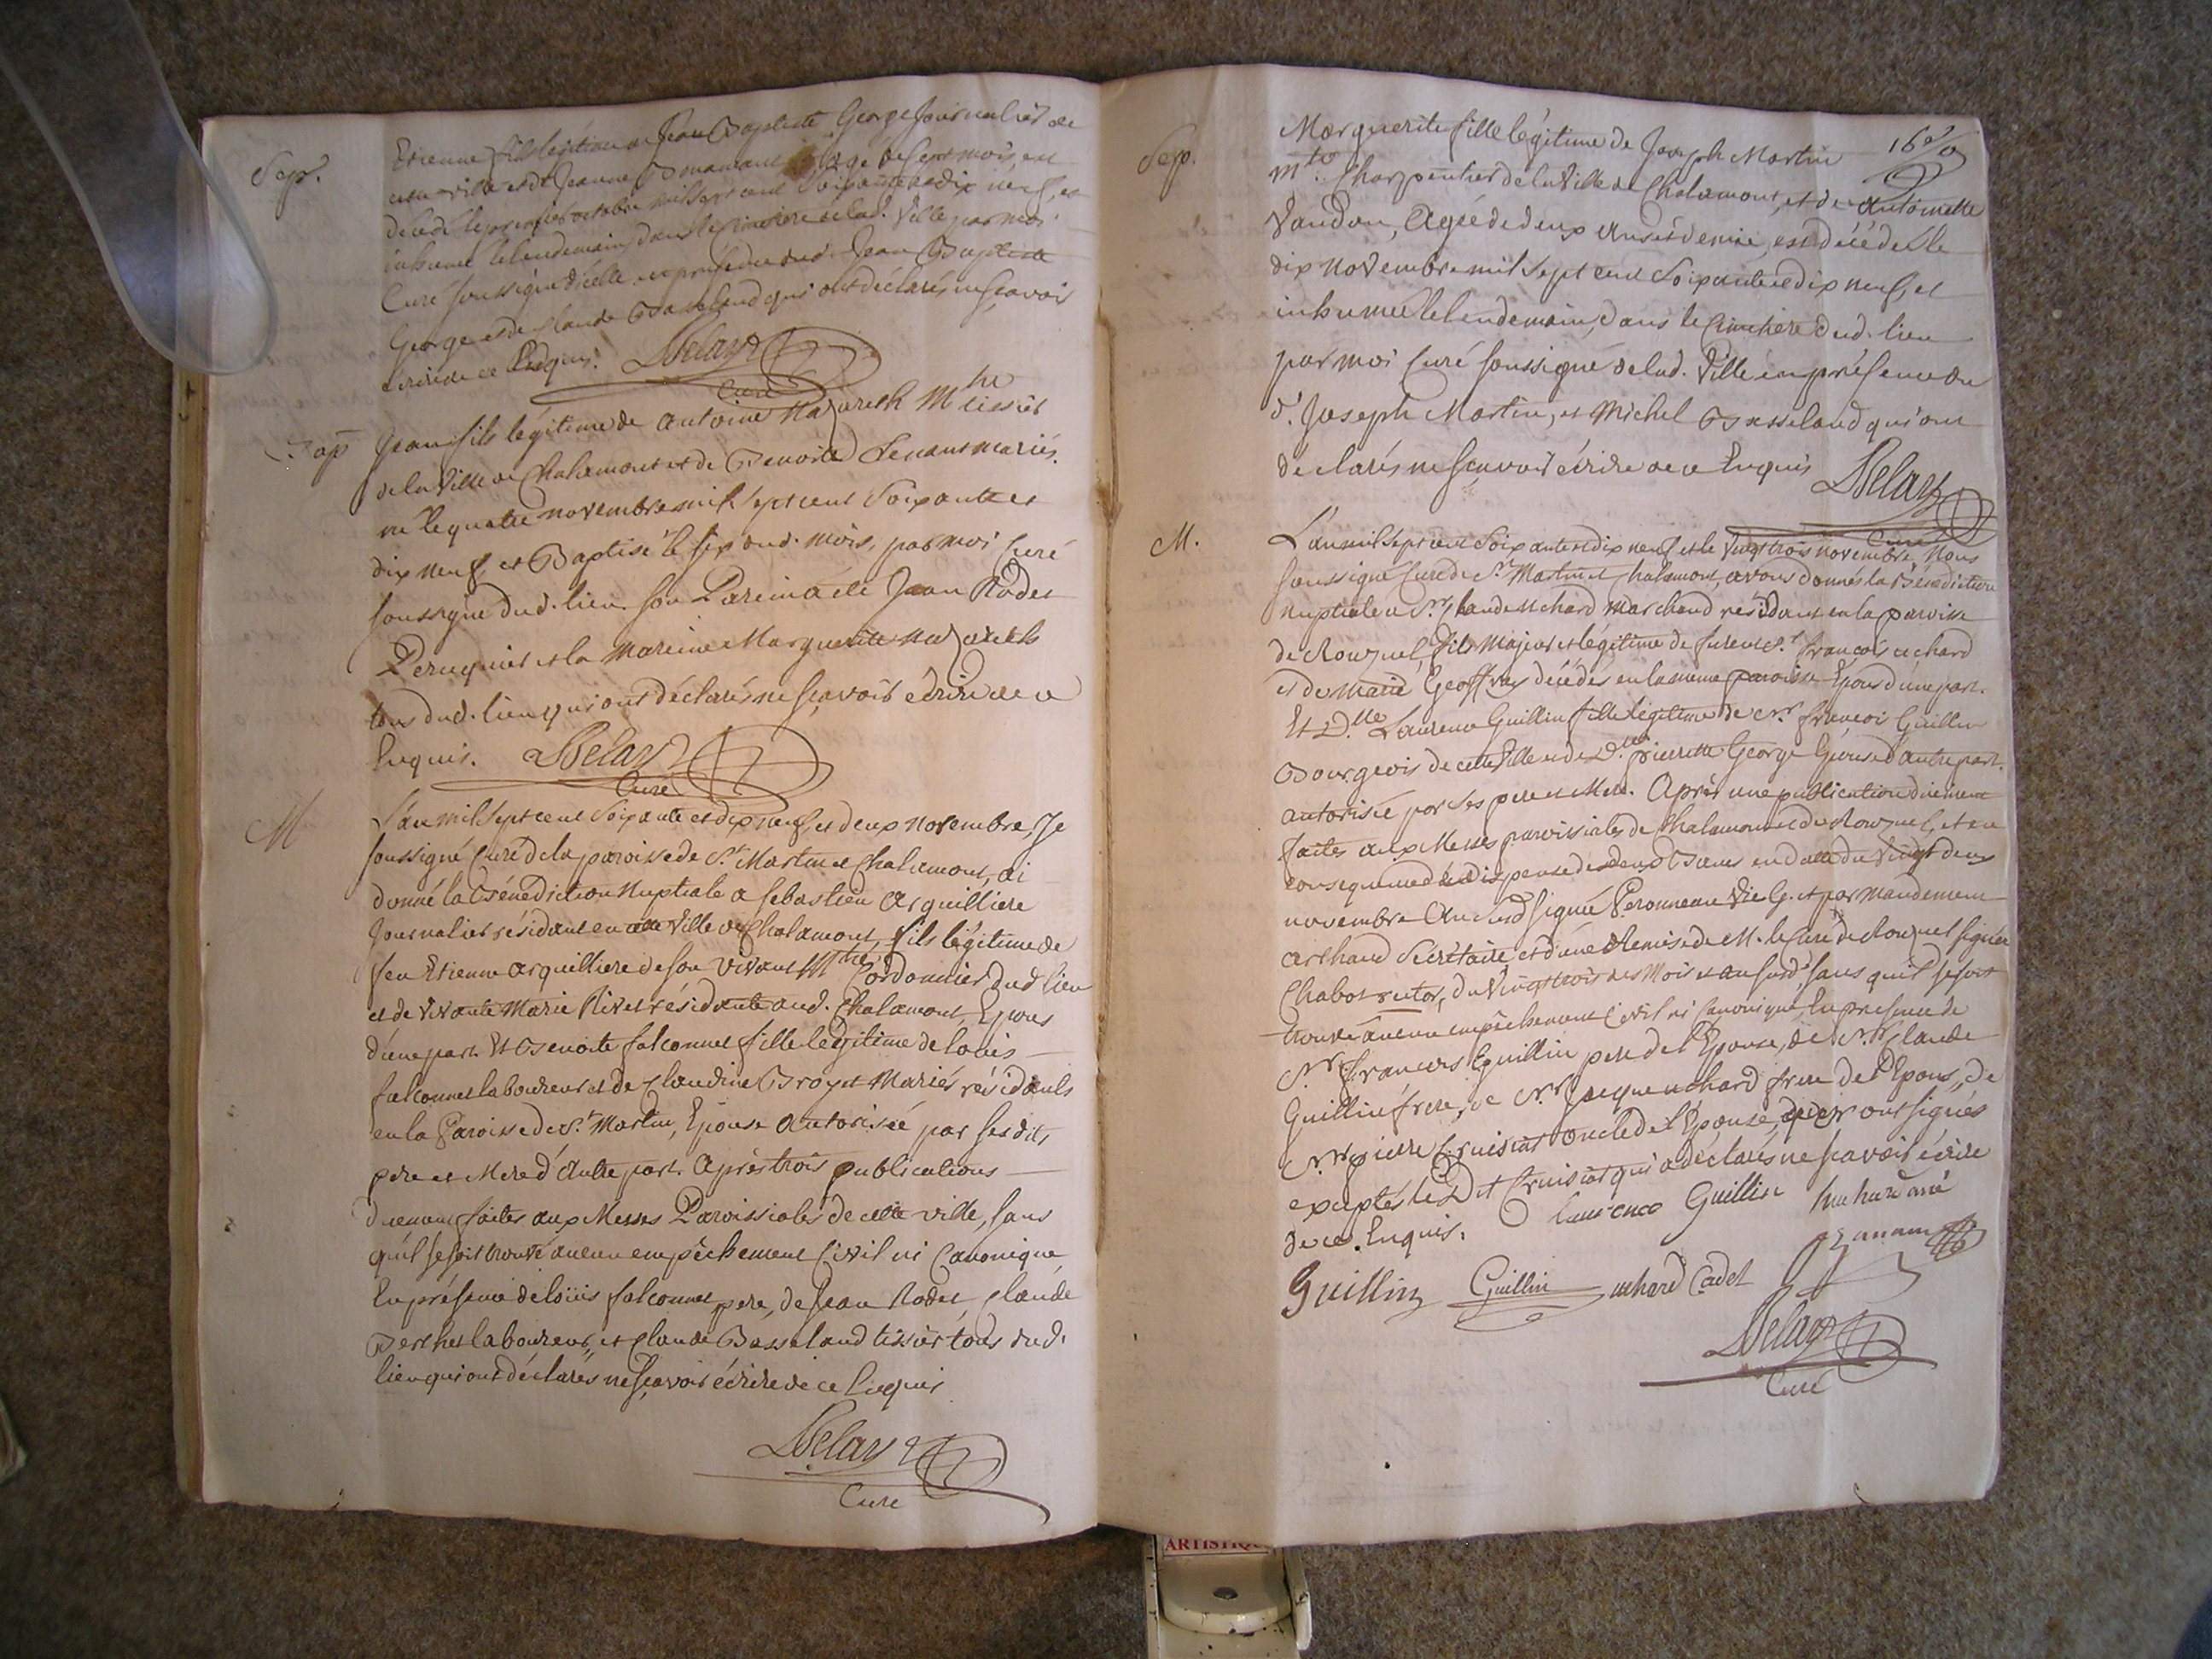 Sep.
Etienne fils légitime de Jean Baptiste George Journalier de
cette ville et de Jeanne agé de sept mois, est
décédé le premier octobre mil sept cent soixante et dix neuf, et
inhumé le lendemain dans le Cimetiere de lad. Ville par moi
Curé soussigné d'icelle en présence dud. Jean Baptiste
George et de Claude Basseland qui ont déclarés ne sçavoir
écrire de ce Enquis. Delay
Curé
Bap
Jean fils légitime de Antoine Nazareth Mtre tissier
de la Ville de Chalamont et de Benoite mariés.
né le quatre novembre mil sept cent Soixante et
dix neuf, et Baptisé le six dud. mois, par moi Curé
soussigné dud. lieu. son Parein a été Jean Rodet
Peruquier et la Mareine Marguerite Nazareth
tous dud. lieu qui ont déclarés ne sçavoir écrire de ce
Enquis. Delay
Curé
M
L'an mil sept cent Soixante et dix neuf, et deux novembre, Je
soussigné Curé de la paroisse de St. Martin et Chalamont, ai
donné la Bénédiction Nuptiale a Sebastien Arquilliere
Journalier résidant en cette Ville de Chalamont, fils légitime de
feu Etienne Arquilliere de son Vivant Mtre Cordonnier dud. lieu
et de Vivante Marie Rivet résidante aud. Chalamont, Epoux
d'une part. Et Benoite falconnet fille légitime de Louis
falconnet laboureur et de Claudine Broyet Mariés résidants
en la Paroisse de St. Martin, Epouse Autorisée par ses dits
pere et Mere d'Autre part. Après trois publications
duement faites aux Messes Paroissiales de cette ville, sans
qu'il se soit trouvé aucun empêchement Civil ni Canonique
En présence de Loüis falconnet pere, de Jean Rodet, Claude
Berthet laboureur, et Claude Basseland tissier tous dud.
lieu qui ont déclarés ne sçavoir écrire de ce Enquis
Delay
Curé
Sep.
Marguerite fille légitime de Joseph Martin
Mtre. Charpentier de la Ville de Chalamont, et de Antoinette
Vaudan, Agée de deux Ans et demie, est décédée le
dix Novembre mil Sept cent Soixante et dix neuf, et
inhumée le lendemain, dans le Cimetiere dud. lieu
par moi Curé soussigné de lad. Ville en présence du
d. Joseph Martin, et Michel Basseland qui ont
declarés ne sçavoir écrire de ce Enquis Delay
Curé
M.
L'an mil sept cent Soixante et dix neuf et le Vingt trois novembre, Nous
soussigné Curé de St. Martin et Chalamont, avons donnés la Bénédiction
Nuptiale a Sr. Claude uchard Marchand résidant en la paroisse
de Ronzuel, fils Majeur et légitime de furent Sr. François uchard
et de Marie Geoffray décédés en la même paroisse Epoux d'une part.
Et D.lle Laurence Guillin fille légitime de Sr. françois Guillin
Bourgeois de cette Ville et de D.lle pierrette George Epouse d'autre part.
autorisée par ses pere et Mere. Après une publication duement
faites aux Messes paroissiales de Chalamont et de Ronzuel, et en
consequence de la dispense des deux Bans en datte du Vingt deux
novembre An susd signée Peronneau Vic G. et par Mandement
arthaud Secrétaire et d'une Remise de M. le Curé de Ronzuel signée
Chabot du Vingt trois des Mois et an susd. sans qu'il se soit
trouvé aucun empêchement Civil ni Canonique, En présence de
Sr. françois Guillin pere de l'Epouse, de Sr. Claude
Guillin frere, de Sr. Jacque uchard frere de l'Epoux, de
Sr. pierre Cruisiat oncle de l'Epouse, qui ont signés
exceptés le Dit Cruisiat qui a déclarés ne scavoir écrire
de ce. Enquis. Laurence Guillin
Guillin Guillin uchard Cadet
Delay
Curé
ARTISTIQU